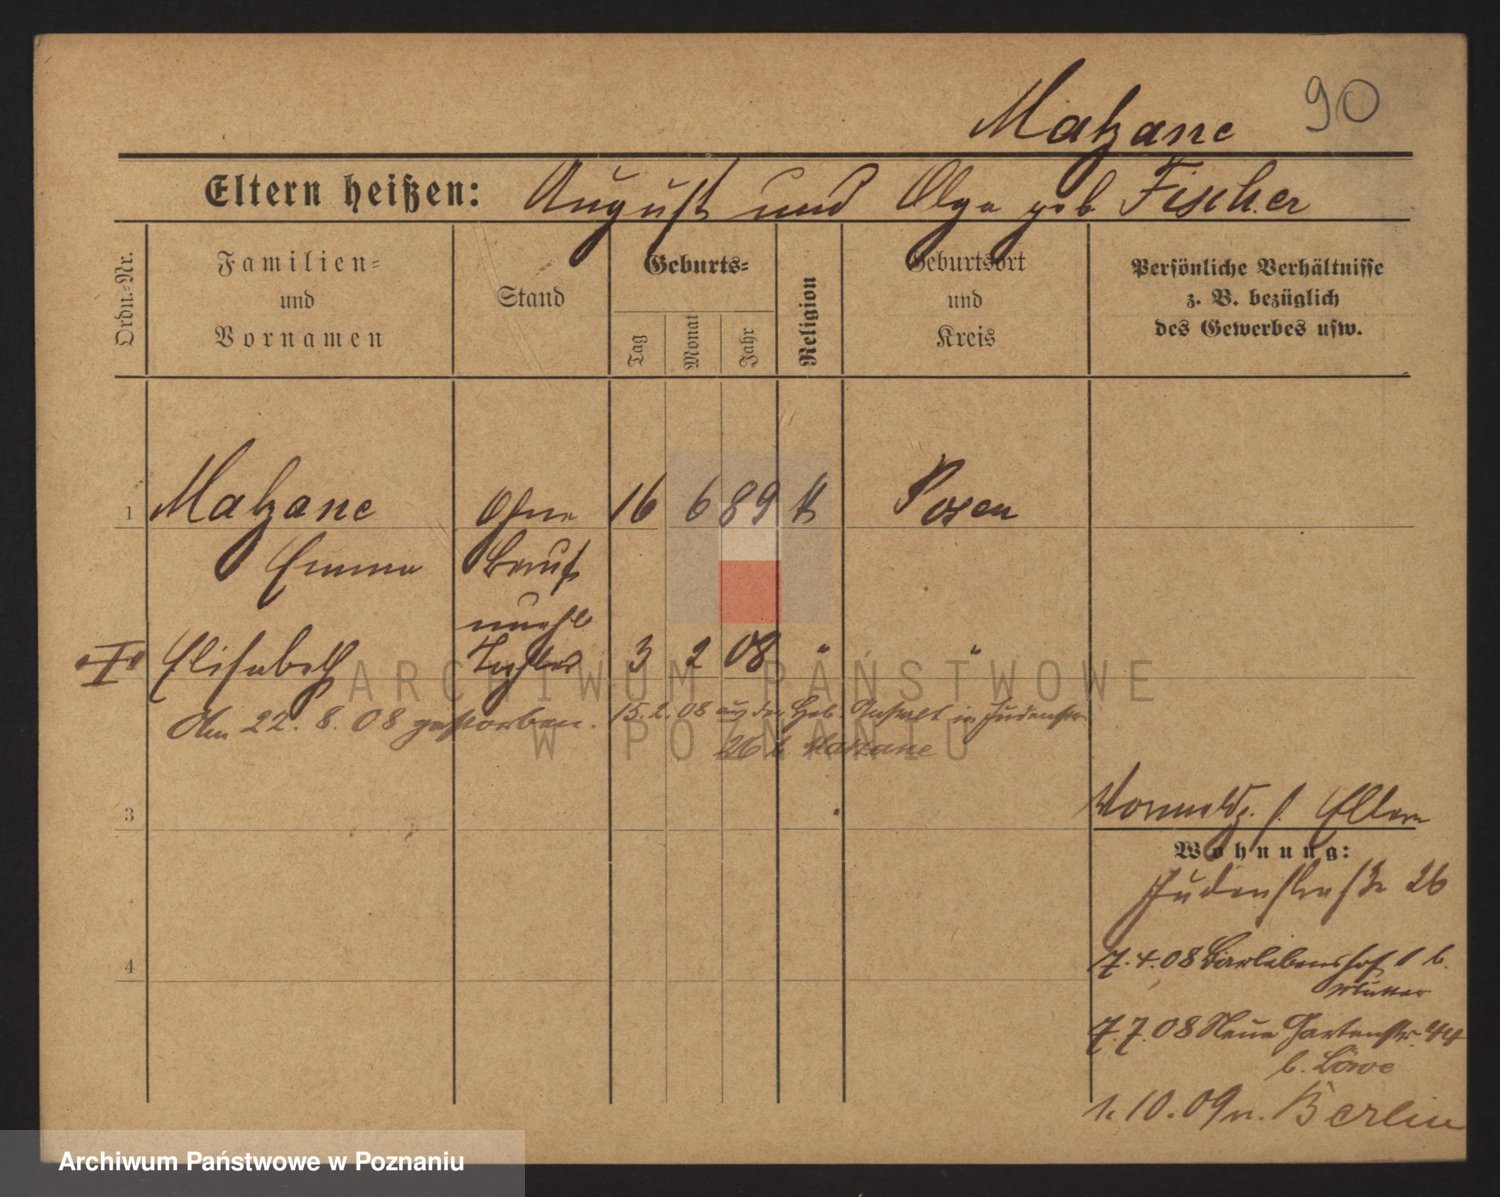 90
Matzane
Eltern heißen: August und Olga geb Fischer
Ordn.-Nr.
Familien-
und
Vornamen
Stand
Geburts-
Tag
Monat
Jahr
Religion
Geburtsort
und
Kreis
Persönliche Verhältnisse
z. B. bezüglich
des Gewerbes usw.
1 Matzane Ohne 16 6 89 Posen
Emma Beruf
unehl
Elisabeth Tochter 3 2 08 " "
Am 22. 8. 08 gestorben. 15. 2. 08 aus der Geb. Anstalt in Judenstr
26 b. Matzane
3
Eltern
Wohnung:
Judenstraße 26
4
7. 4. 08 Bartlebenshof 1 b.
Mutter
7. 7. 08 Neue Gartenstr. 44
b. Löwe
1. 10. 09 n. Berlin
ARCHIWUM PAŃSTWOWE
W POZNANIU
Archiwum Państwowe w Poznaniu